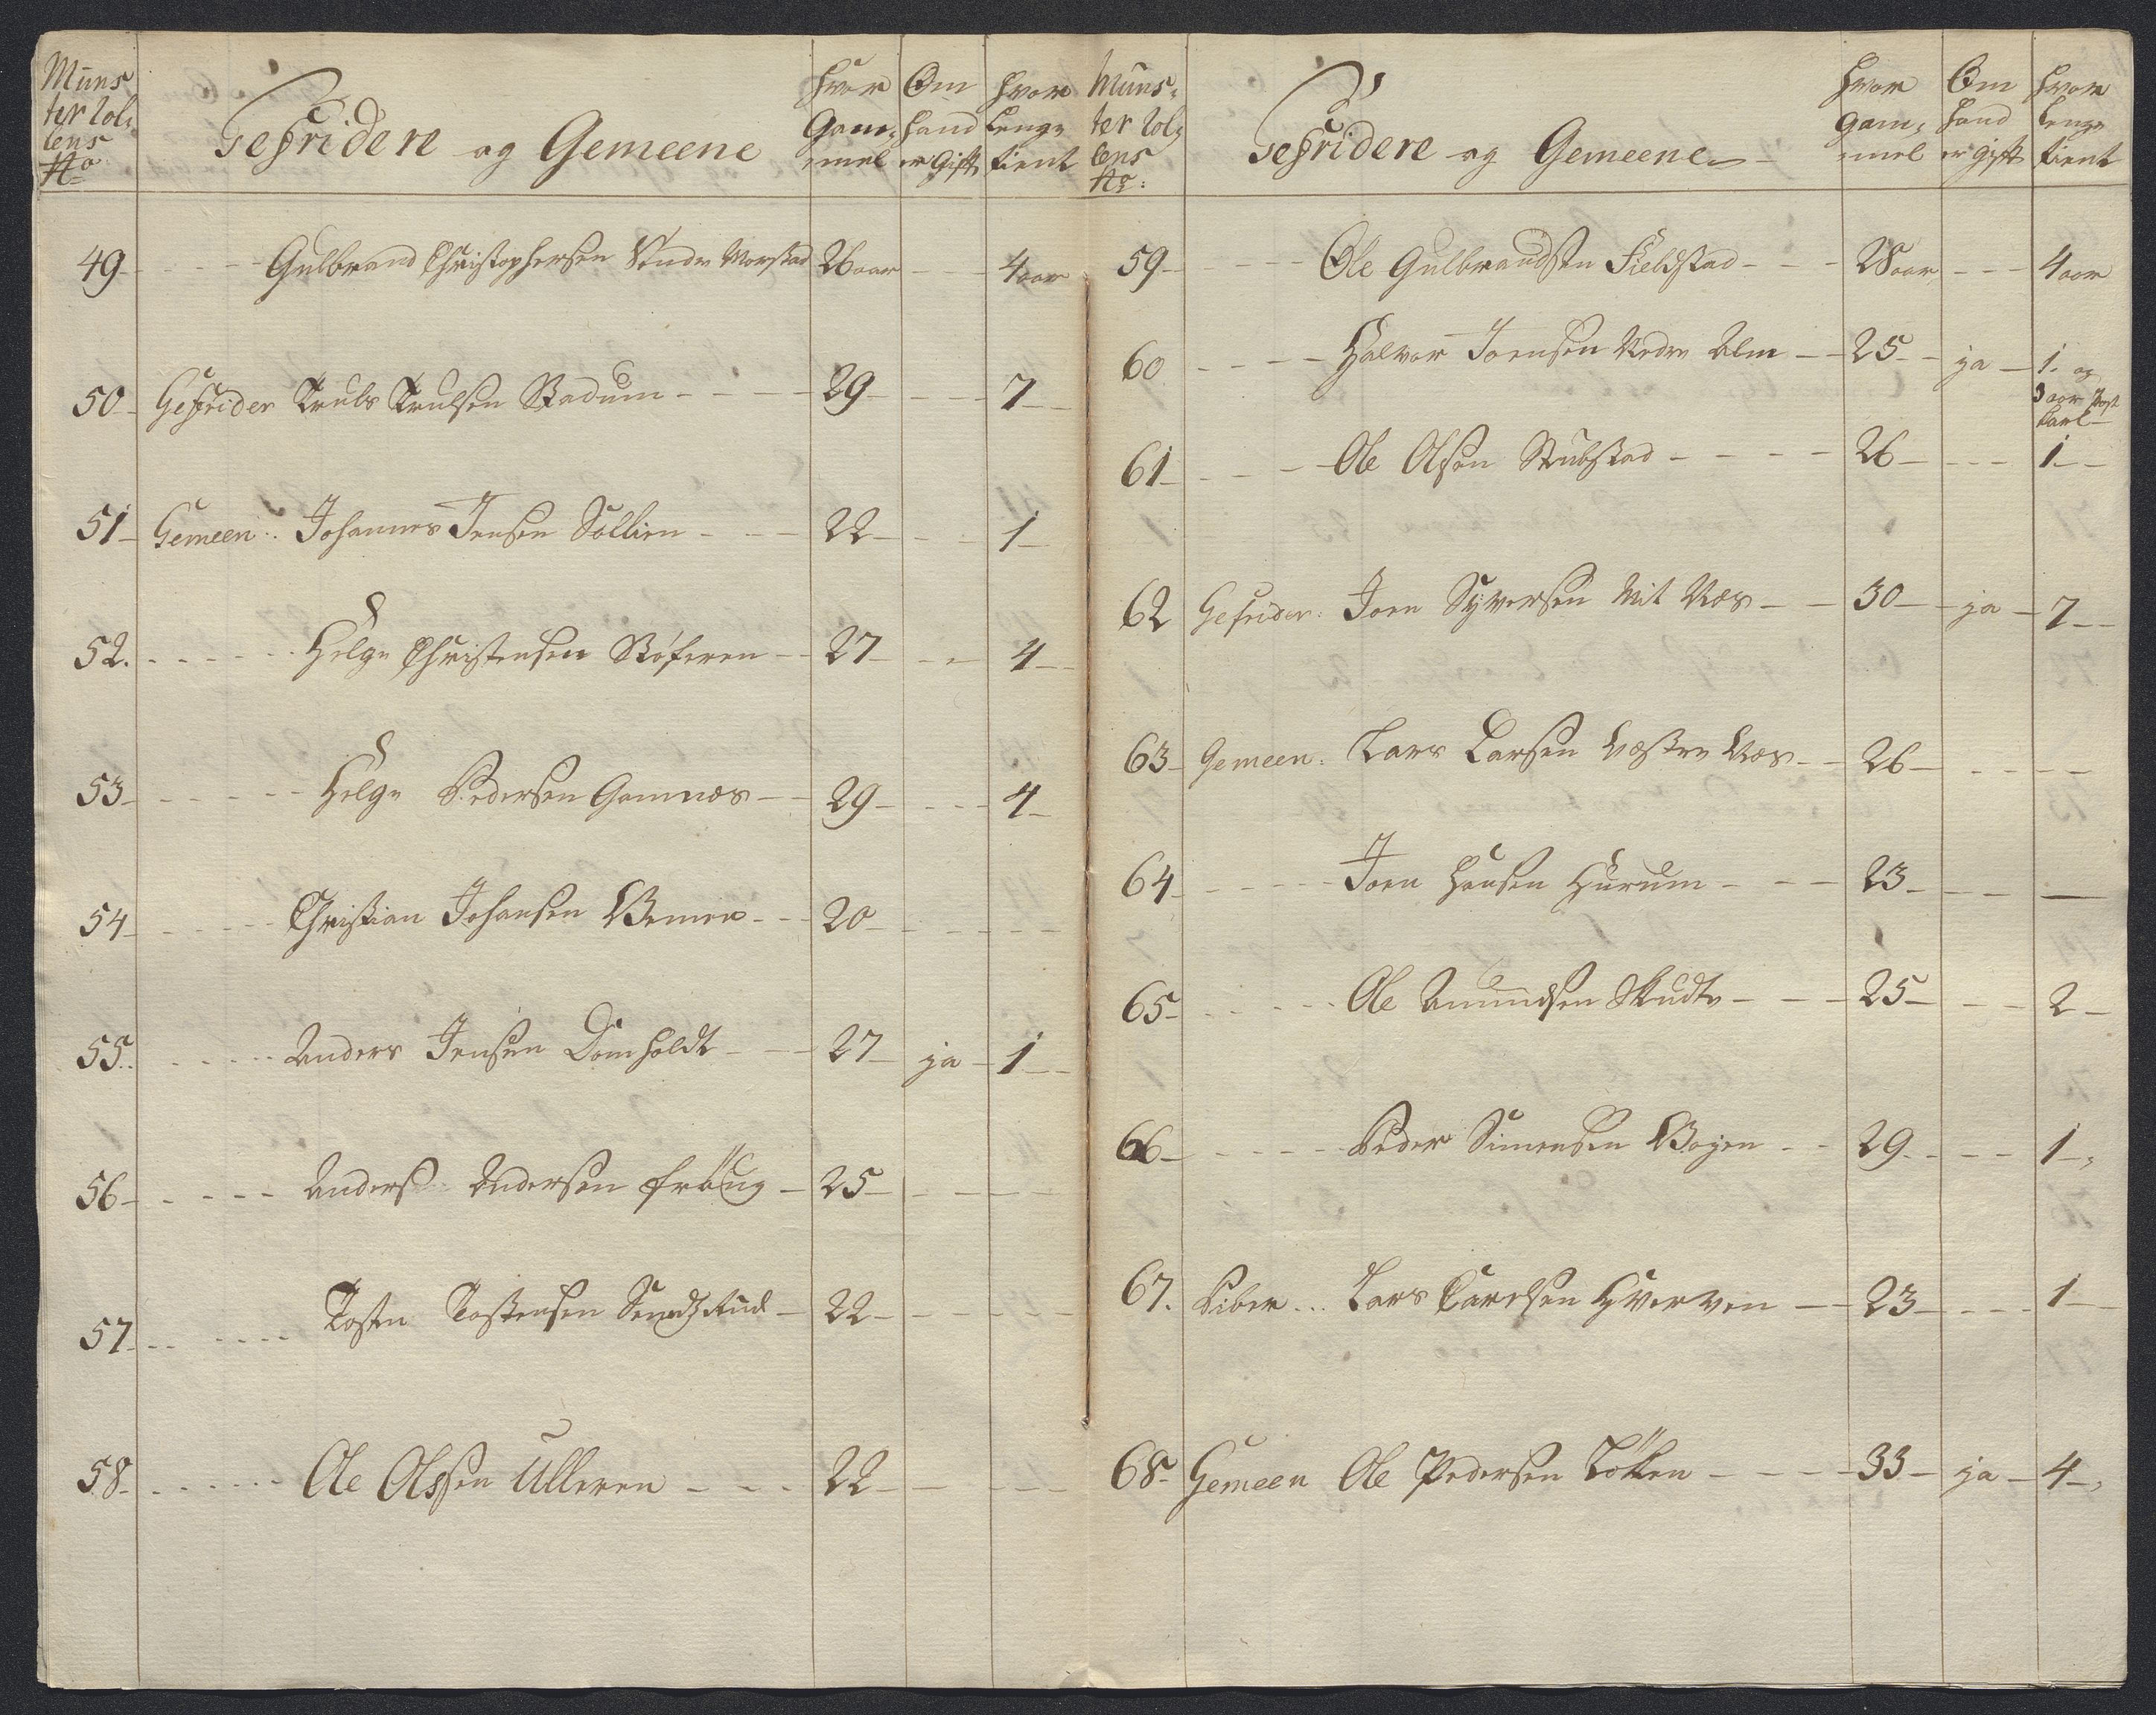 Muns
ter Rol:
lens
No
Gefridere og Gemeene
Hvor
Gam:
mel
Om
hand
er Gift
Hvor
Lenge
tient
49 Gulbrand Christophersen Nndre Morstad 26 aar 4 aar
50 Gefrider Truls Trulsen Stadum 29 7
51 Gemeen Johannes Jensen Sollien 22 1
52. Helge Christensen 27 4
53 Helge Pedersen Gamnæs 29 4
54 Christian Johansen 20
55 Anders Jensen Domholdt 27 ja 1
56 Anders Andersen Fröug 25
57 Tosten Tostensen 22
58 Ole Olssen Ulleren 22
Muns:
ter Rol:
lens
No:
Gefridere og Gemeene
Hvor
gam:
mel
Om
hand
er gift
Hvor
Lenge
tient
59 Ole Gulbrandsen Fieldstad 28 aar 4 aar
60 Halvor Joensen Nedre Alm 25 ja 1 og
3 aar
Karl
61 Ole Olsen Strubstad 26 1
62 Gefrider: Joen Syversen Mit Næs 30 ja 7
63 Gemeen: Lars Larsen Vestre Næs 26
64 Joen Hansen Hurum 23
65 Ole Amundsen Skudte 25 2
66 Peder Simensen 29 1
67. Piber Lars Carelsen Hverven 23 1
68 Gemeen Ole Pedersen Löken 33 ja 4